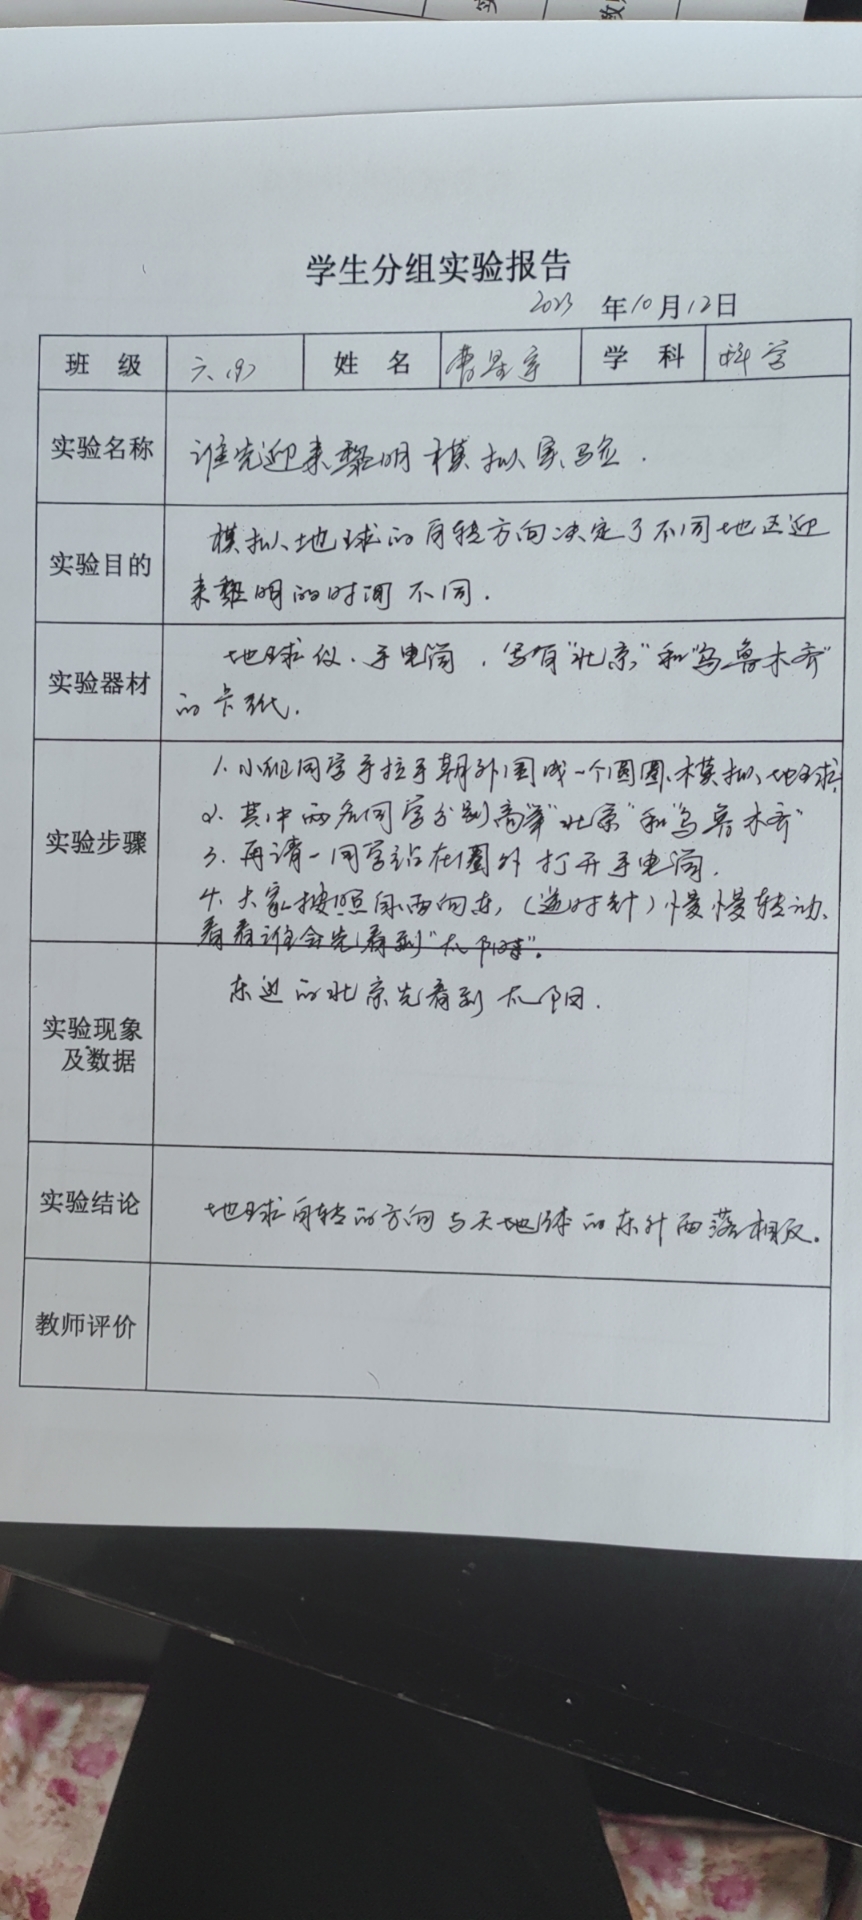 学生分组实验报告
2023 年10月12日
班 级 六、(9) 姓 名 曹星宇 学 科 科学
实验名称 谁先迎来黎明模拟实验.
实验目的 模拟地球的自转方向决定了不同地区迎
来黎明的时间不同.
实验器材 地球仪、手电筒,写有“北京”和“乌鲁木齐”
的卡纸.
实验步骤 1.小组同学手拉手朝外围成一个圆圈、模拟地球.
2.其中两名同学分别高举“北京”和“乌鲁木齐”
3.再请一同学站在圈外打开手电筒.
4.大家按照自西向东,(逆时针)慢慢转动、
看看谁会先看到“太阳”.
实验现象
及数据
东边的北京先看到太阳.
实验结论 地球自转的方向与天地球的东升西落相反.
教师评价